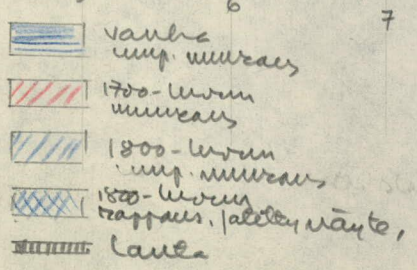 6 7
vanha
ump. muuraus
1700-luvun
muuraus
1800-luvun
ump. muuraus
1800-luvun
rappaus, näyte,
lauta